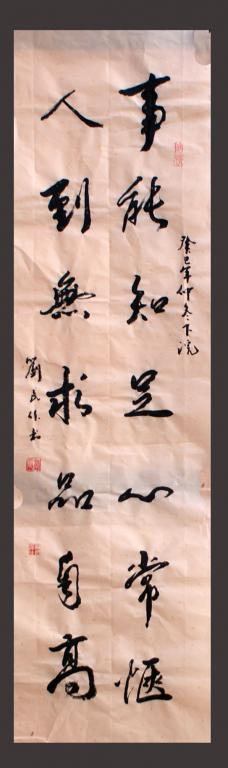 事能知足心常惬
人到無求品自高
癸巳年仲冬下浣
劉